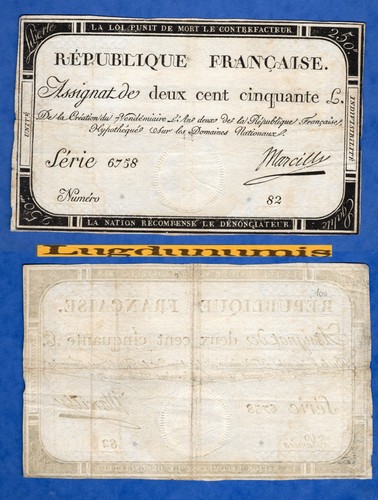 LA LOI PUNIT DE MORT LE CONTREFACTEUR
Liberté
250#
RÉPUBLIQUE FRANÇAISE.
Assignat de deux cent cinquante L.
De la Création du 7 Vendémiaire L'An deux de la République Française,
Hypothéqué sur les Domaines Nationaux.
UNITÉ
INDIVISIBILITÉ
Série 6758
Numéro
82
LA NATION RÉCOMPENSE LE DÉNONCIATEUR
Lugdunumis
100
RÉPUBLIQUE FRANÇAISE.
Assignat de deux cent cinquante L.
Série 6758
82